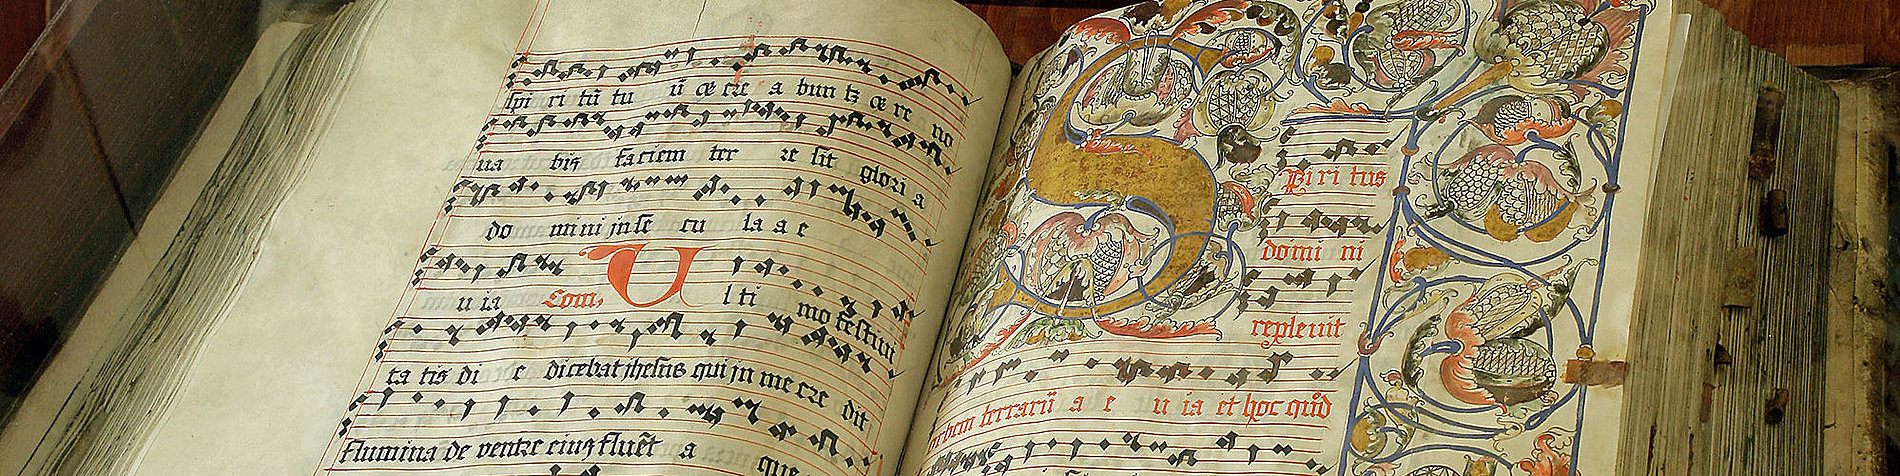 spi ri tū tu ū & cre a bun tʒ & re no
ua bis faciem ter re sit glori a
do mi ni jn se cu la a e
u ia Com, U l ti mo festiui
ta tis di e dicebat jhesus qui jn me cre dit
flumina de ventre eius fluēt a que
S pi ri tus
domi ni
repleuit
orbem terrarū a e u ia et hoc quod